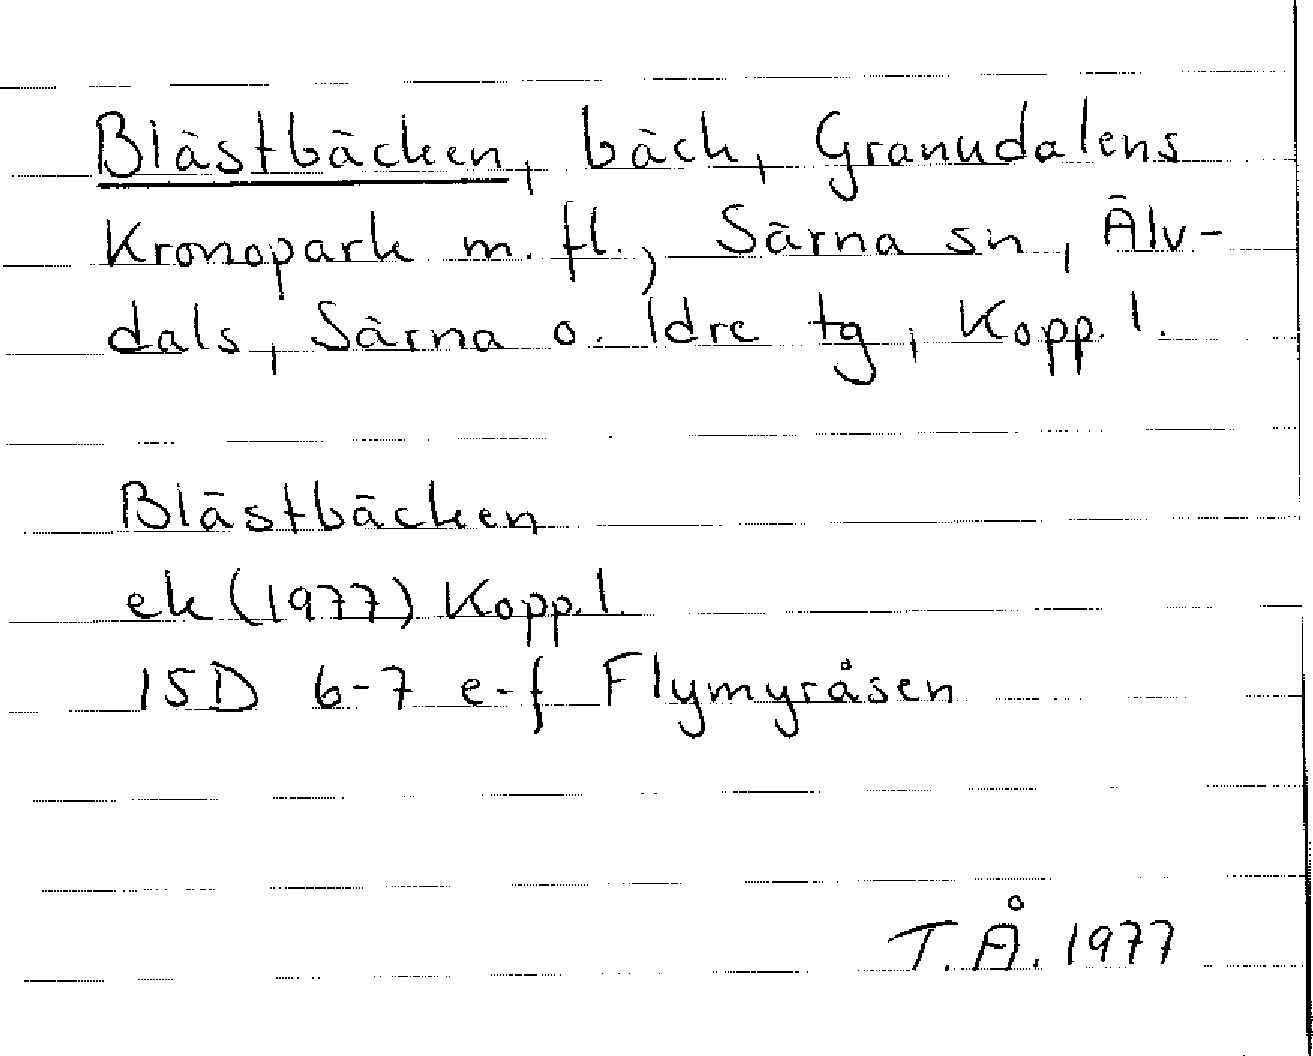 Blästbäcken, bäck, Granudalens
Kronopark m. fl., Särna sn, Älv-
dals, Särna o. Idre tg, Kopp. l.
Blästbäcken
ek (1977) Kopp. l.
15D 6-7 e-f Flymyråsen
T. Å. 1977